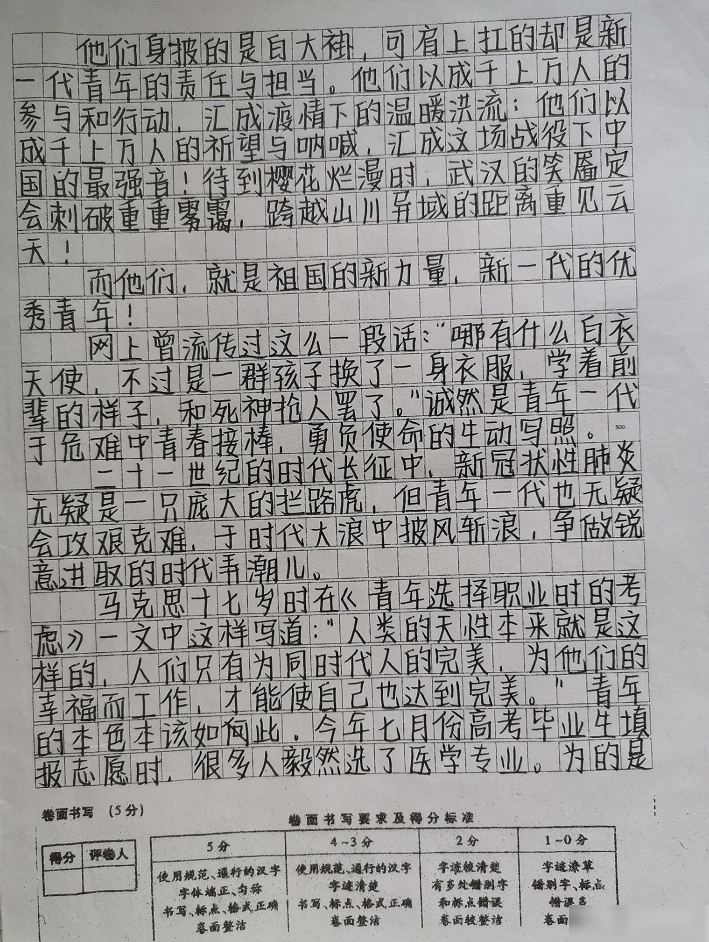 他们身披的是白大褂，可肩上扛的却是新
一代青年的责任与担当。他们以成千上万人的
参与和行动，汇成疫情下的温暖洪流；他们以
成千上万人的祈望与呐喊，汇成这场战役下中
国的最强音！待到樱花烂漫时，武汉的笑靥定
会刺破重重雾霭，跨越山川异域的距离重见云
天！
而他们，就是祖国的新力量，新一代的优
秀青年！
网上曾流传过这么一段话：“哪有什么白衣
天使，不过是一群孩子换了一身衣服，学着前
辈的样子，和死神抢人罢了。”诚然是青年一代
于危难中青春接棒，勇负使命的生动写照。
二十一世纪的时代长征中，新冠状性肺炎
无疑是一只庞大的拦路虎，但青年一代也无疑
会攻艰克难，于时代大浪中披风斩浪，争做锐
意进取的时代弄潮儿。
马克思十七岁时在《青年选择职业时的考
虑》一文中这样写道：“人类的天性本来就是这
样的，人们只有为同时代人的完美，为他们的
幸福而工作，才能使自己也达到完美。”青年
的本色本该如何此。今年七月份高考毕业生填
报志愿时，很多人毅然选了医学专业。为的是
卷面书写 （5分）
卷面书写要求及得分标准
得分 评卷人
5分 4~3分 2分 1~0分
使用规范、通行的汉字 使用规范、通行的汉字 字迹较清楚 字迹潦草
字体端正、匀称 字迹清楚 有多处错别字 错别字、标点
书写、标点、格式正确 书写、标点、格式正确 和标点错误 错误多
卷面整洁 卷面整洁 卷面较整洁 卷面